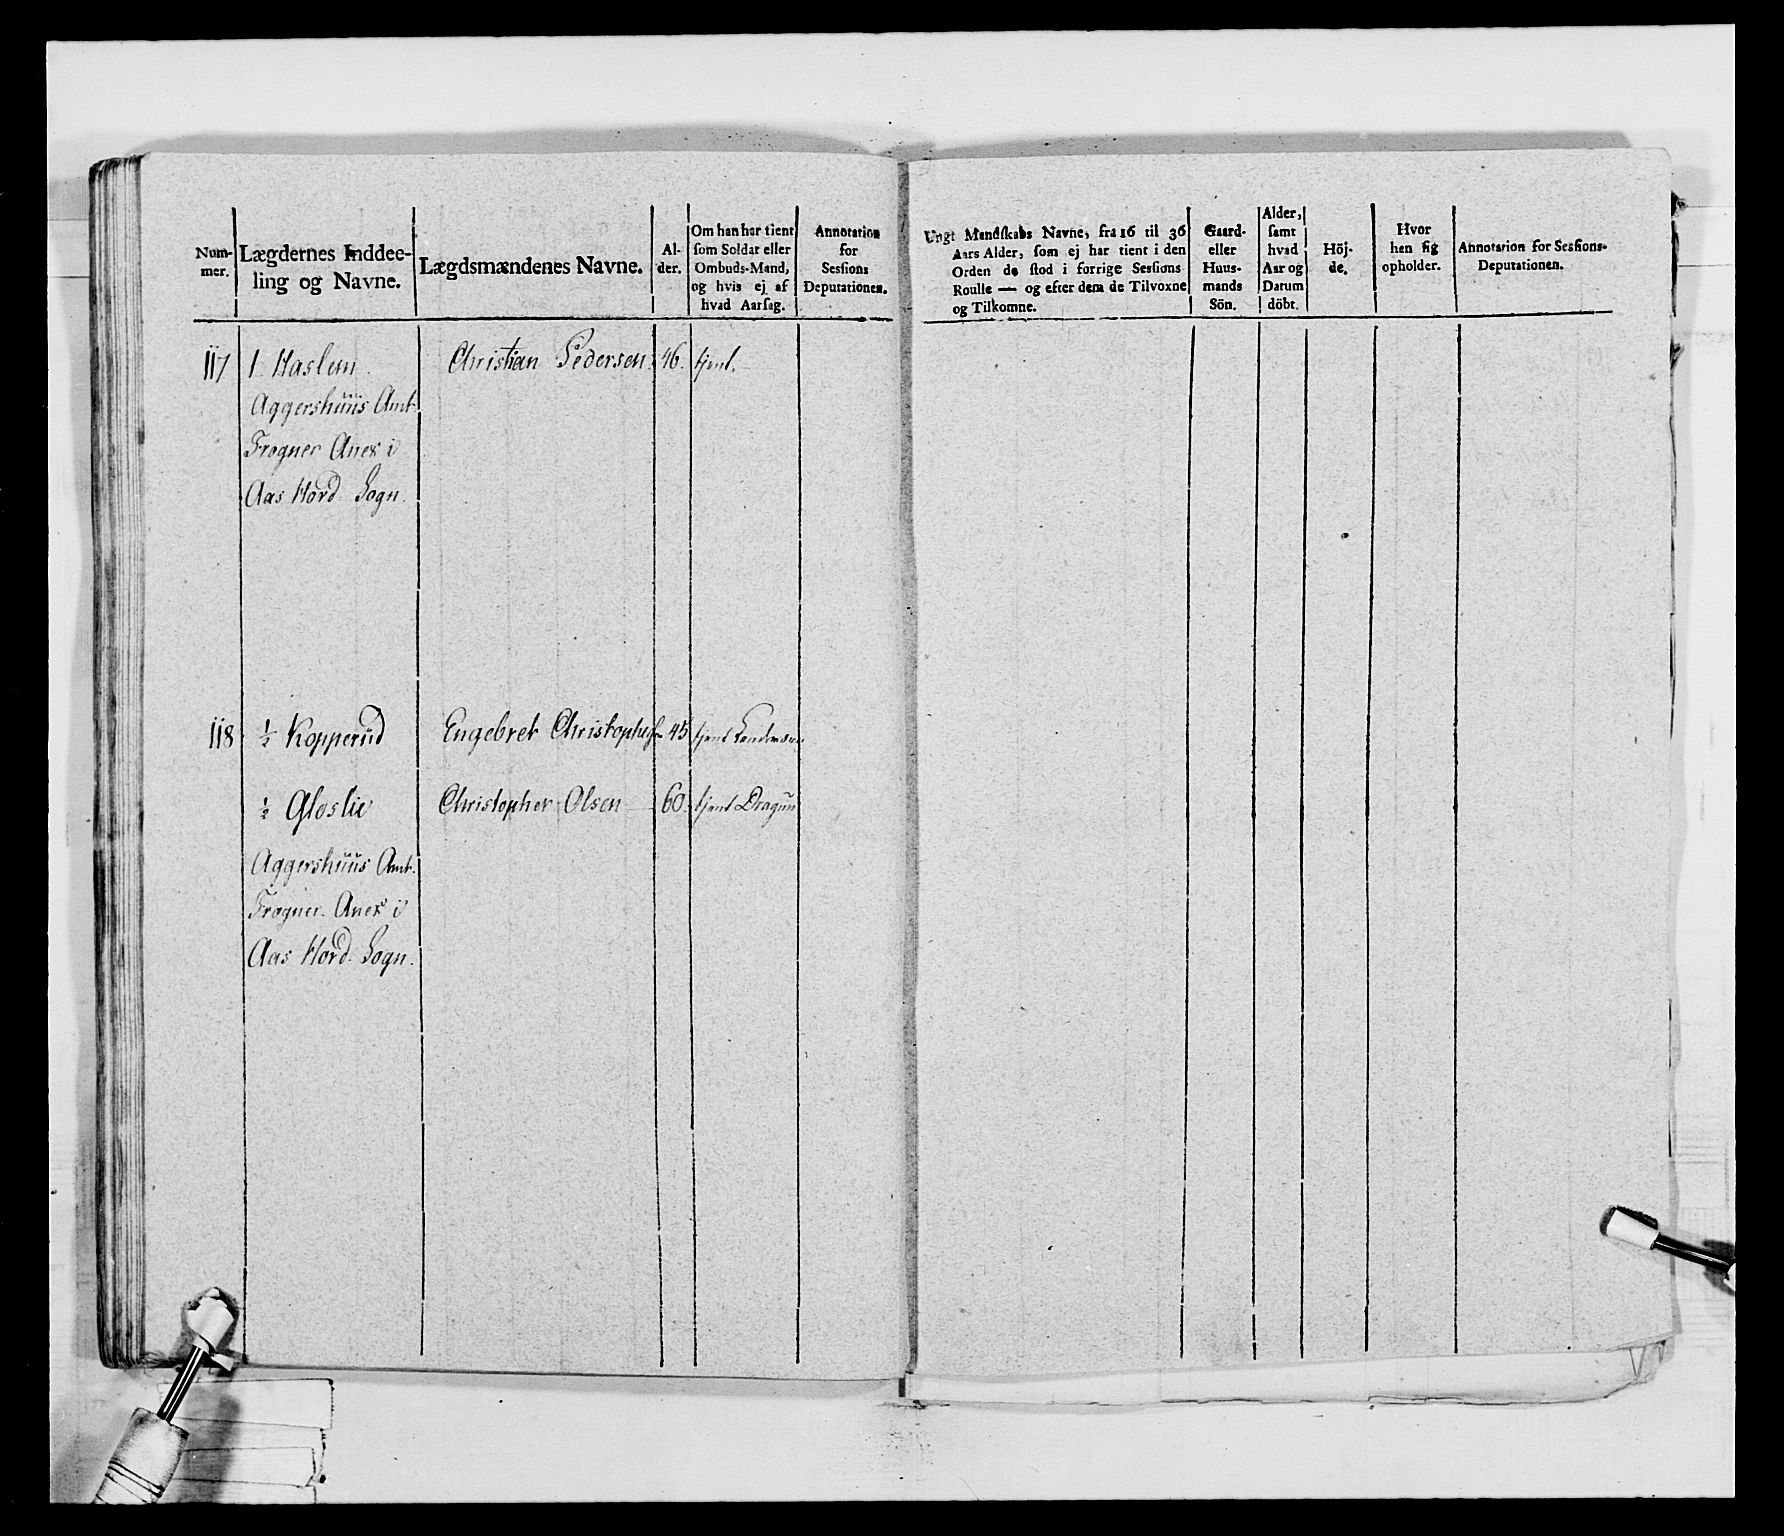 Num-
mer.
Lægdernes Inddee-
ling og Navne.
Lægdsmændenes Navne.
Al-
der.
Om han har tient
som Soldat eller
Ombuds-Mand,
og hvis ej af
hvad Aarsag.
Annotation
for
Sessions
Deputationen.
117 1 Haslem Christian Pedersen 46. tjent.
Aggershuus Amt
Frogner Anex i
Aas Hord Sogn.
118 ½ Kopperud Engebret Christophs 45 tjent
½ Gloslie Christopher Olsen 60 tjent Dragun
Aggershuus Amt.
Frogner Anex i
Aas Hord Sogn.
Ungt Mandskabs Navne, fra 16 til 36
Aars Alder, som ej har tient i den
Orden de stod i forrige Sessions
Roulle — og efter dem de Tilvoxne
og Tilkomne.
Gaard-
eller
Huus-
mands
Sön.
Alder,
samt
hvad
Aar og
Datum
döbt.
Höj-
de.
Hvor
han sig
opholder.
Annotation for Sessions-
Deputationen.